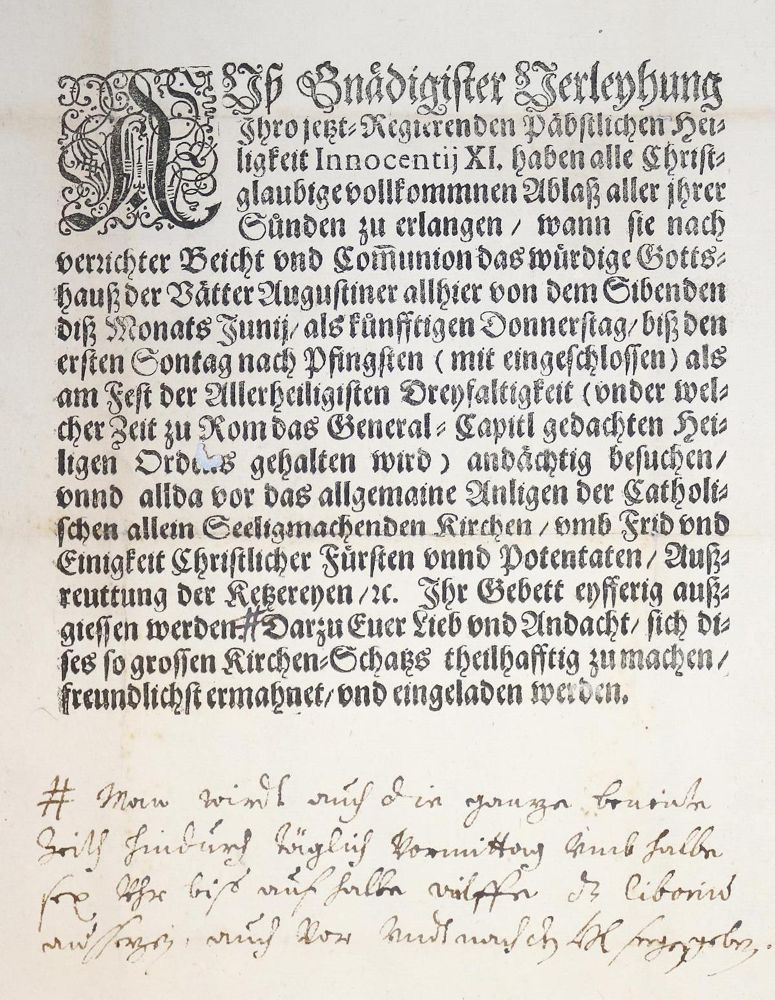 AUß Gnädigister Verleyhung
Ihro jetzt-Regierenden Päbstlichen Hei-
ligkeit Innocentij XI. haben alle Christ-
glaubige vollkommnen Ablaß aller jhrer
Sünden zu erlangen / wann sie nach
verrichter Beicht vnd Com̅union das würdige Gotts-
hauß der Vätter Augustiner allhier von dem Sibenden
diß Monats Junij / als künfftigen Donnerstag / biß den
ersten Sontag nach Pfingsten ( mit eingeschlossen ) als
am Fest der Allerheiligisten Dreyfaltigkeit ( vnder wel-
cher Zeit zu Rom das General-Capitl gedachten Hei-
ligen Ordens gehalten wird ) andächtig besuchen /
vnnd allda vor das allgemaine Anligen der Catholi-
schen allein Seeligmachenden Kirchen / vmb Frid vnd
Einigkeit Christlicher Fürsten vnnd Potentaten / Auß-
reuttung der Ketzereyen / ꝛc. Ihr Gebett eyfferig auß-
giessen werden. # Darzu Euer Lieb vnd Andacht / sich di-
ses so grossen Kirchen-Schatzs theilhafftig zu machen /
freundlichst ermahnet / vnd eingeladen werden.
# Man wirdt auch die ganze benente
Zeith hindurch täglich Vormittag Vmb halbe
sex Vhr biß auf halbe
aussezen, auch Vor Vndt nach